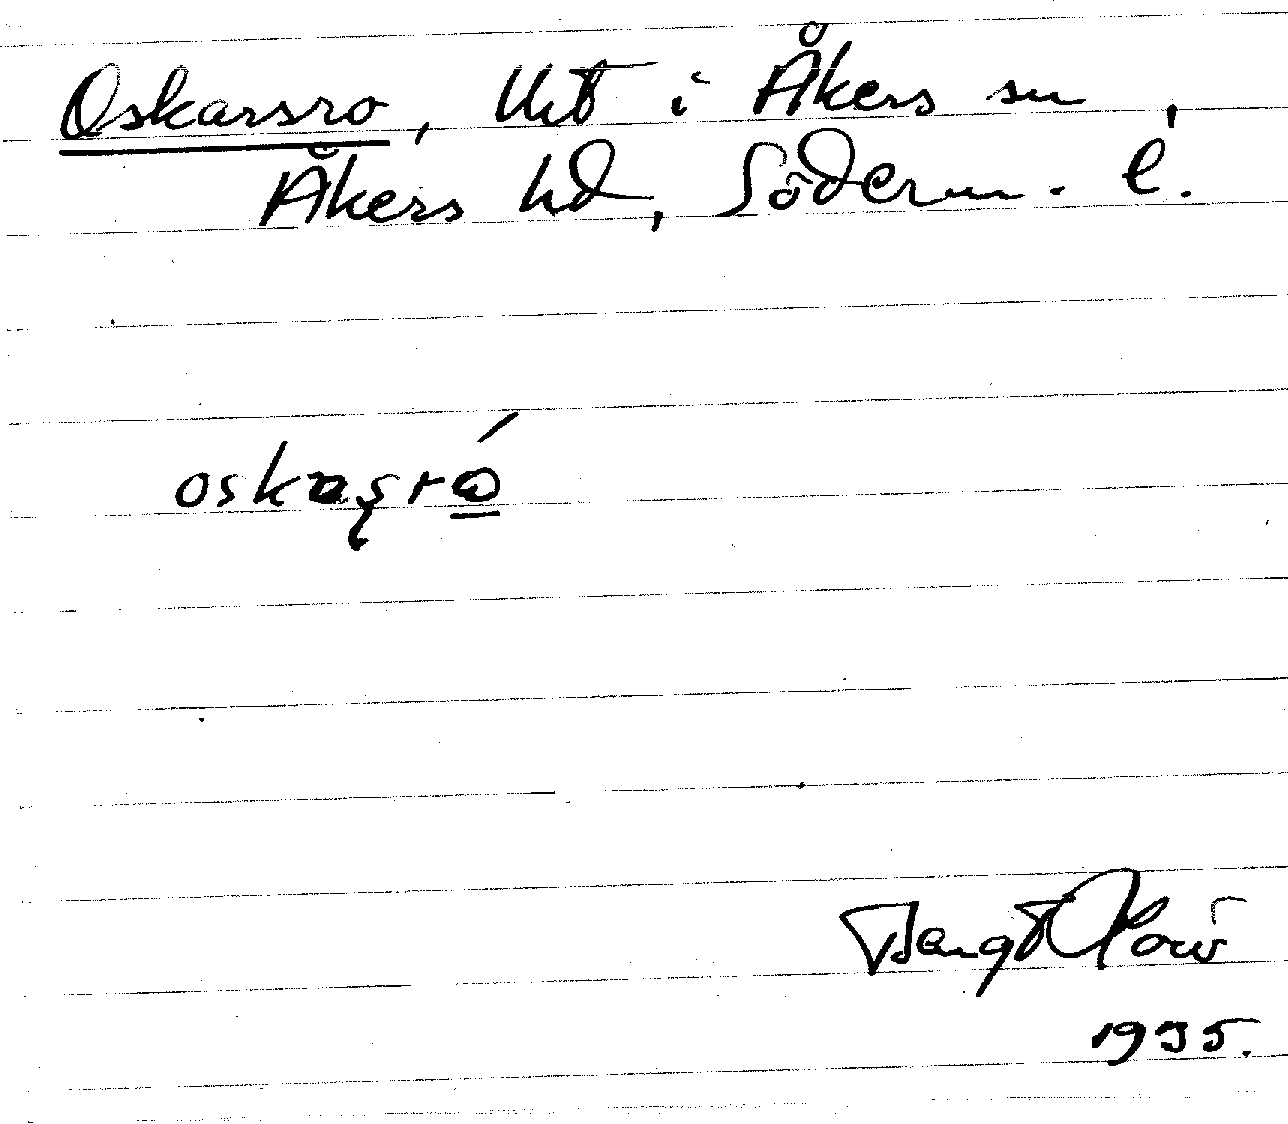 Oskarsro, lht i Åkers sn,
Åkers hd, Söderm. l.
oskaşrώ
Bengt
1935.